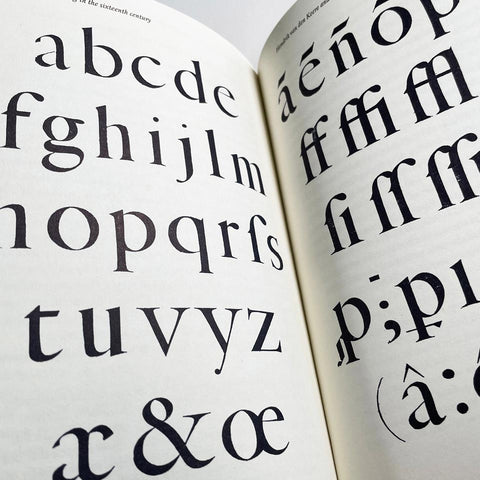 in the sixteenth century
abcde
fghijlm
nopqrſs
tuvyz
æ&œ
Hendrik van den Keere and
áéñóp
ff ffi ffl
ſi ſſ ſſi
;
(â: